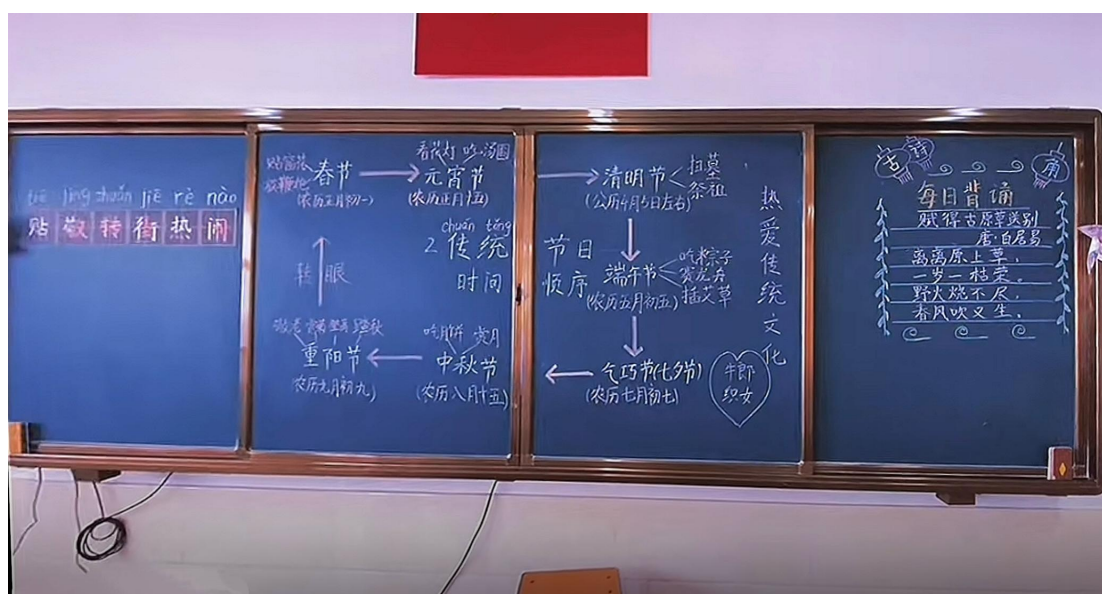 tiē jìng zhuǎn jiē rè nào
贴敬转街热闹
贴窗花
放鞭炮
春节
(农历正月初一)
看花灯 吃汤圆
元宵节
(农历正月十五)
chuán tǒng
2 传统
时间
转眼
敬老 赏菊 登高 踏秋
重阳节
(农历九月初九)
吃月饼 赏月
中秋节
(农历八月十五)
清明节
(公历4月5日左右)
扫墓
祭祖
节日
顺序
端午节
(农历五月初五)
吃粽子
赛龙舟
插艾草
乞巧节(七夕节)
(农历七月初七)
牛郎
织女
热爱传统文化
古诗角
每日背诵
赋得古原草送别
唐·白居易
离离原上草,
一岁一枯荣。
野火烧不尽,
春风吹又生。